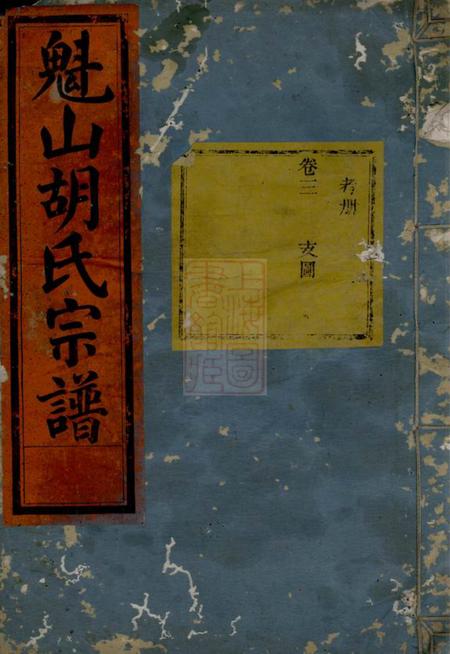 魁山胡氏宗譜
孝册
卷三 支圖
上海圖書館藏